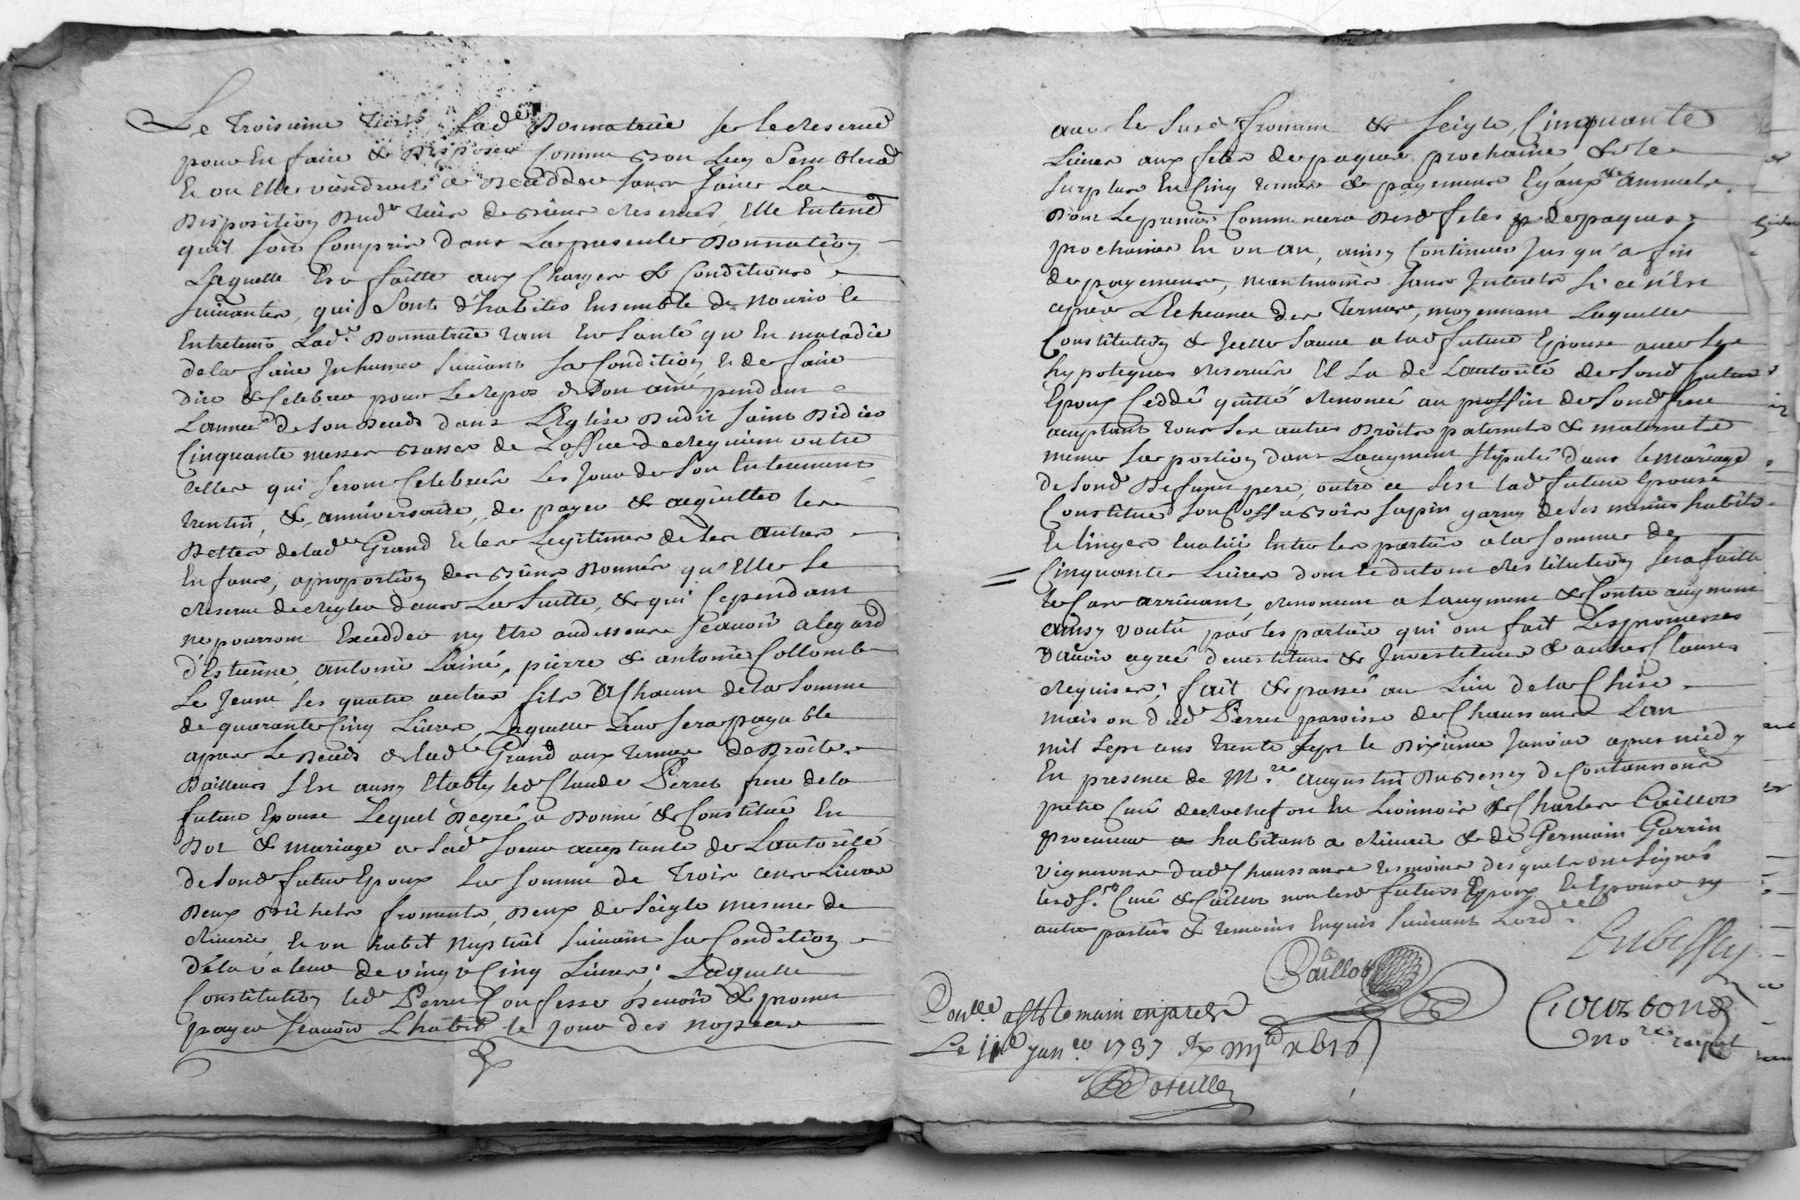 Le troisieme tiers lade Donnatrice se le reserve
pour en faire & disposer comme bon luy semblerad
& ou elle viendroit a decedder sans faire la
disposition dud. tiers de biens reservés, elle entend
quil soit compris dans la presente donnation
Laquelle est faitte aux charges & conditions
suivantes, qui sont d'habiter ensemble de nourir &
entretenir lad.e Donnatrice tant en santé qu'en maladie
de la faire inhumer suivant sa condition & de faire
dire & celebrer pour le repos de son ame pendant
l'année de son deceds dans l'Eglise dudit saint Didier
cinquante messes basses de l'office de requiem outre
celles qui seront celebrées les jour de son enterrement
trentin, & anniversaire, de payer & acquitter les
dettes de lade Grand & les legitimes de ses autres
enfans, a proportion des biens donnés qu'elle se
reserve de regler dans la suitte, & qui cependant
ne pourront excedder ny etre audessous scavoir a legard
d'Estienne, antoine lainé, pierre & antoine Collomb
le jeune ses quatre autres fils a chacun de la somme
de quarante cinq livres, laquelle leur sera payable
apres le deceds de lade Grand aux termes de droits
D'ailleurs s'est aussy etably led Claude Perret frere de la
future Epouse lequel degré a donné & constitué en
dot & mariage a lade soeur acceptante de l'autorité
de sond futur Epoux la somme de trois cens livres
deux bichets froment, deux de seigle mesure de
riverie & un habit nuptial suivant sa condition
de la valeur de vingt cinq livres; Laquelle
constitution led Perret confesse devoir & promet
payer scavoir l'habit le jour des nopces
avec le susd froment & seigle, cinquante
livres aux fetes de paques prochaine, & le
surplus en cinq termes & payemens egaux & annuels
dont le premier commencera desd fetes de paques
prochaines en un an, ainsy continuer jusqu'a fin
de payemens, neantmoins sans interets si ce n'est
apres l'echeance des termes, moyennant laquelle
constitution & icelle sauve a lad future Epouse avec ses
hypoteques reservés Elle a de l'autorité de sond futur
Epoux ceddé quitté renoncé au proffit de sond frere
acceptant tous ses autres droits paternels & maternels
meme sa portion dans l'augment stipulé dans le mariage
de sond defunt pere, outre ce s'est lad future Epouse
constitué son coffre bois sapin garny de ses menus habits
& linges evalué entre les parties a la somme de
cinquante livres dont le du tout restitution sera faitte
le cas arrivant, renoncent a l'augment & contre augment
ainsy voulu par les parties qui ont fait les promesses
d'avoir agreé devestitures & investitures & autres clauses
requises; fait & passé au lieu de la Chise
maison dud Perret paroisse de Chaussant l'an
mil sept cens trente sept le dixieme janvier apres midy
en presence de M.re augustin Dubessey de Contanson
pretre curé de rochefort en Lionnois & Charles Caillot
procureur habitant a riverie & de Germain Garrin
vigneron dud Chaussant temoins desquels ont signés
lesd S.r Curé & Caillot non lesd futurs Epoux & Epouse ny
autres parties & temoins enquis suivant l'ord.ce
Dubessey
Caillot
Gourbon
no.re royal
Le 11e jan.er 1737